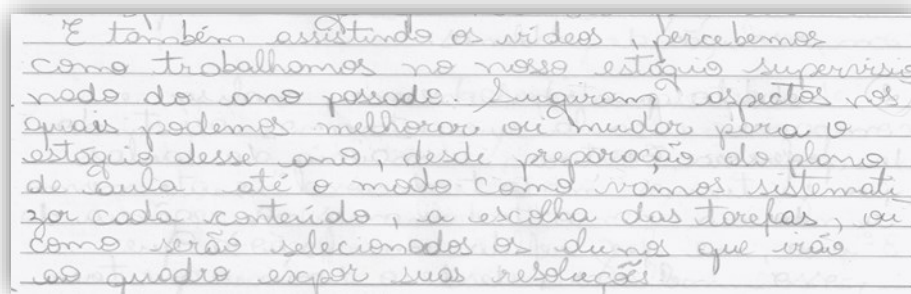 E também assistindo os vídeos, percebemos
como trabalhamos no nosso estágio supervisio
nado do ano passado. Sugiram aspectos nos
quais podemos melhorar ou mudar para o
estágio desse ano, desde preparação do plano
de aula até o modo como vamos sistemati
zar cada conteúdo, a escolha das tarefas, ou
como serão selecionados os alunos que irão
ao quadro expor suas resoluções